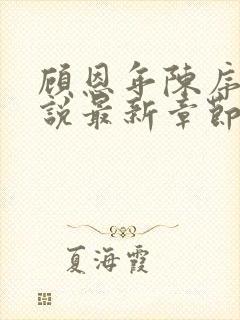 顾恩年陈序
說最新章節
夏海霞